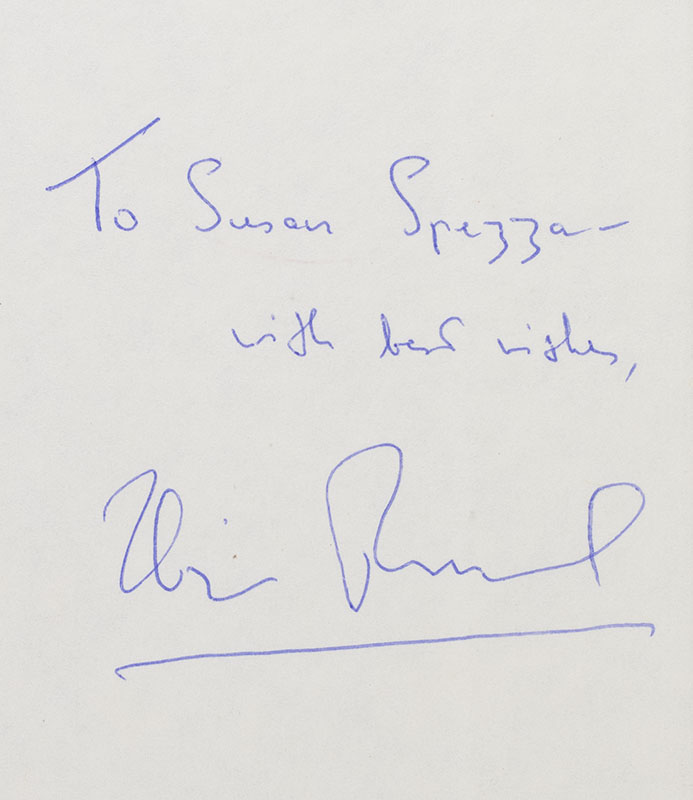 To Susan Spezza-
with best wishes,